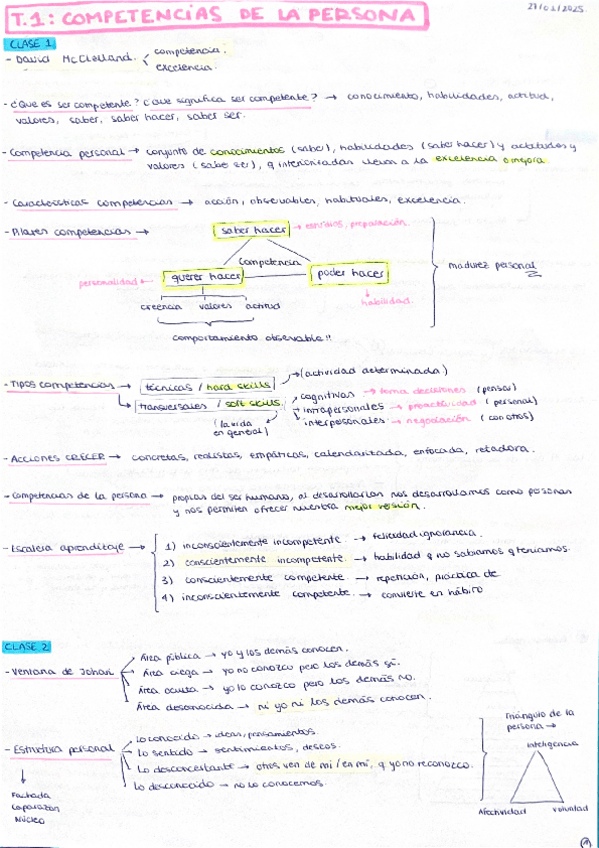 T.1: COMPETENCIAS DE LA PERSONA
27/01/2025
CLASE 1
- David McClelland. competencia.
excelencia.
- ¿Que es ser competente? ¿que significa ser competente? → conocimiento, habilidades, actitud,
valores, saber, saber hacer, saber ser.
- Competencia personal → conjunto de conocimientos (saber), habilidades (saber hacer) y actitudes y
valores (saber ser), q interiorizadas llevan a la excelencia o mejora.
- Características competencias → acción, observables, habituales, excelencia.
- Pilares competencias →
saber hacer → estudios, preparación.
Competencia
personalidad ← querer hacer
poder hacer
madurez personal
habilidad.
creencia valores actitud
comportamiento observable!!
- Tipos competencias → técnicas / hard skills → (actividad determinada)
→ transversales / soft skills
(la vida en general)
cognitivas → toma decisiones (pensar)
intrapersonales → proactividad (personal)
interpersonales → negociación (con otros)
- Acciones CRECER → concretas, realistas, empáticas, calendarizada, enfocada, retadora.
- Competencias de la persona → propias del ser humano, al desarrollarlas nos desarrollamos como personas
y nos permiten ofrecer nuestra mejor versión.
- Escalera aprendizaje →
1) inconscientemente incompetente. → felicidad ignorancia.
2) conscientemente incompetente. → habilidad q no sabiamos q teniamos.
3) conscientemente competente. → repetición, práctica de
4) inconscientemente competente. → convierte en hábito
CLASE 2
- Ventana de Johari
Área pública → yo y los demás conocen.
Área ciega → yo no conozco pero los demás sí.
Área oculta → yo lo conozco pero los demás no.
Área desconocida → ni yo ni los demás conocen.
- Estructura personal
Lo conocido → ideas, pensamientos.
Lo sentido → sentimientos, deseos.
Lo desconcertante → otros ven de mi / en mi, q yo no reconozco.
Lo desconocido → no lo conocemos.
Fachada
Caparazón
Núcleo
Triángulo de la
persona →
Inteligencia
Afectividad
Voluntad
1